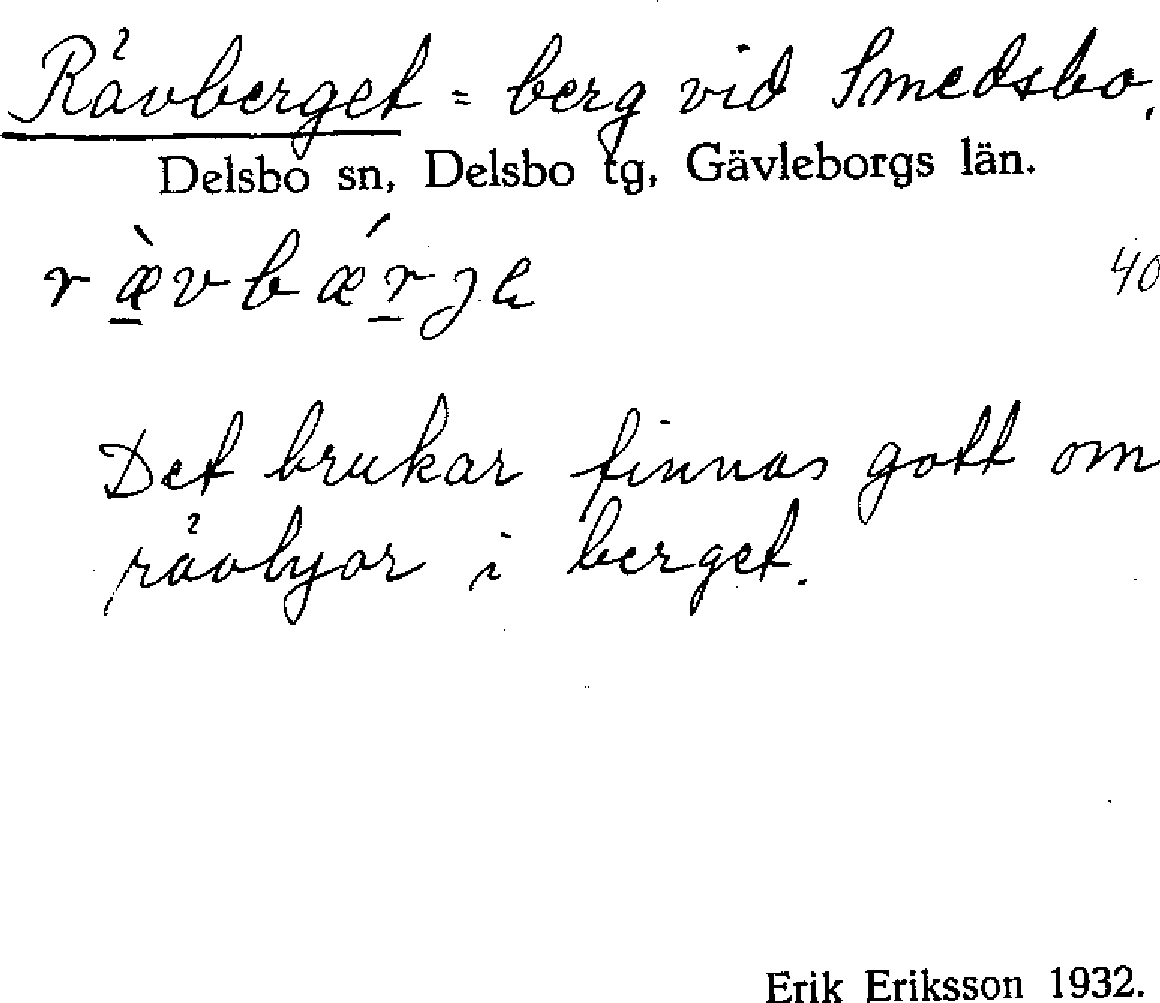 Rävberget = berg vid Smedsbo.
Delsbo sn, Delsbo tg, Gävleborgs län.
r æ̀ v b ǽ r j e 40
Det brukar finnas gott om
rävlyor i berget.
Erik Eriksson 1932.